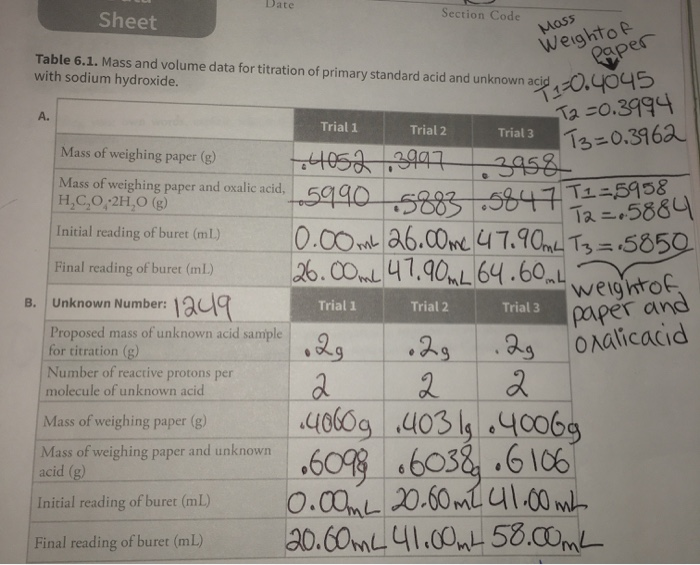 Date
Section Code
Sheet
Mass
Weight of
paper
Table 6.1. Mass and volume data for titration of primary standard acid and unknown acid
with sodium hydroxide.
T1=0.4045
T2=0.3994
T3=0.3962
A.
Trial 1 Trial 2 Trial 3
Mass of weighing paper (g) .4052 .3997 .3958
Mass of weighing paper and oxalic acid,
H₂C₂O₄·2H₂O (g) .5990 .5883 .5847
T1=.5958
T2=.5884
T3=.5850
Initial reading of buret (mL) 0.00mL 26.00mL 47.90mL
Final reading of buret (mL) 26.00mL 47.90mL 64.60mL
weight of
paper and
oxalic acid
B. Unknown Number: 1249 Trial 1 Trial 2 Trial 3
Proposed mass of unknown acid sample
for titration (g) .2g .2g .2g
Number of reactive protons per
molecule of unknown acid 2 2 2
Mass of weighing paper (g) .4060g .4031g .4006g
Mass of weighing paper and unknown
acid (g) .6098g .6038g .6106
Initial reading of buret (mL) 0.00mL 20.60mL 41.00mL
Final reading of buret (mL) 20.60mL 41.00mL 58.00mL